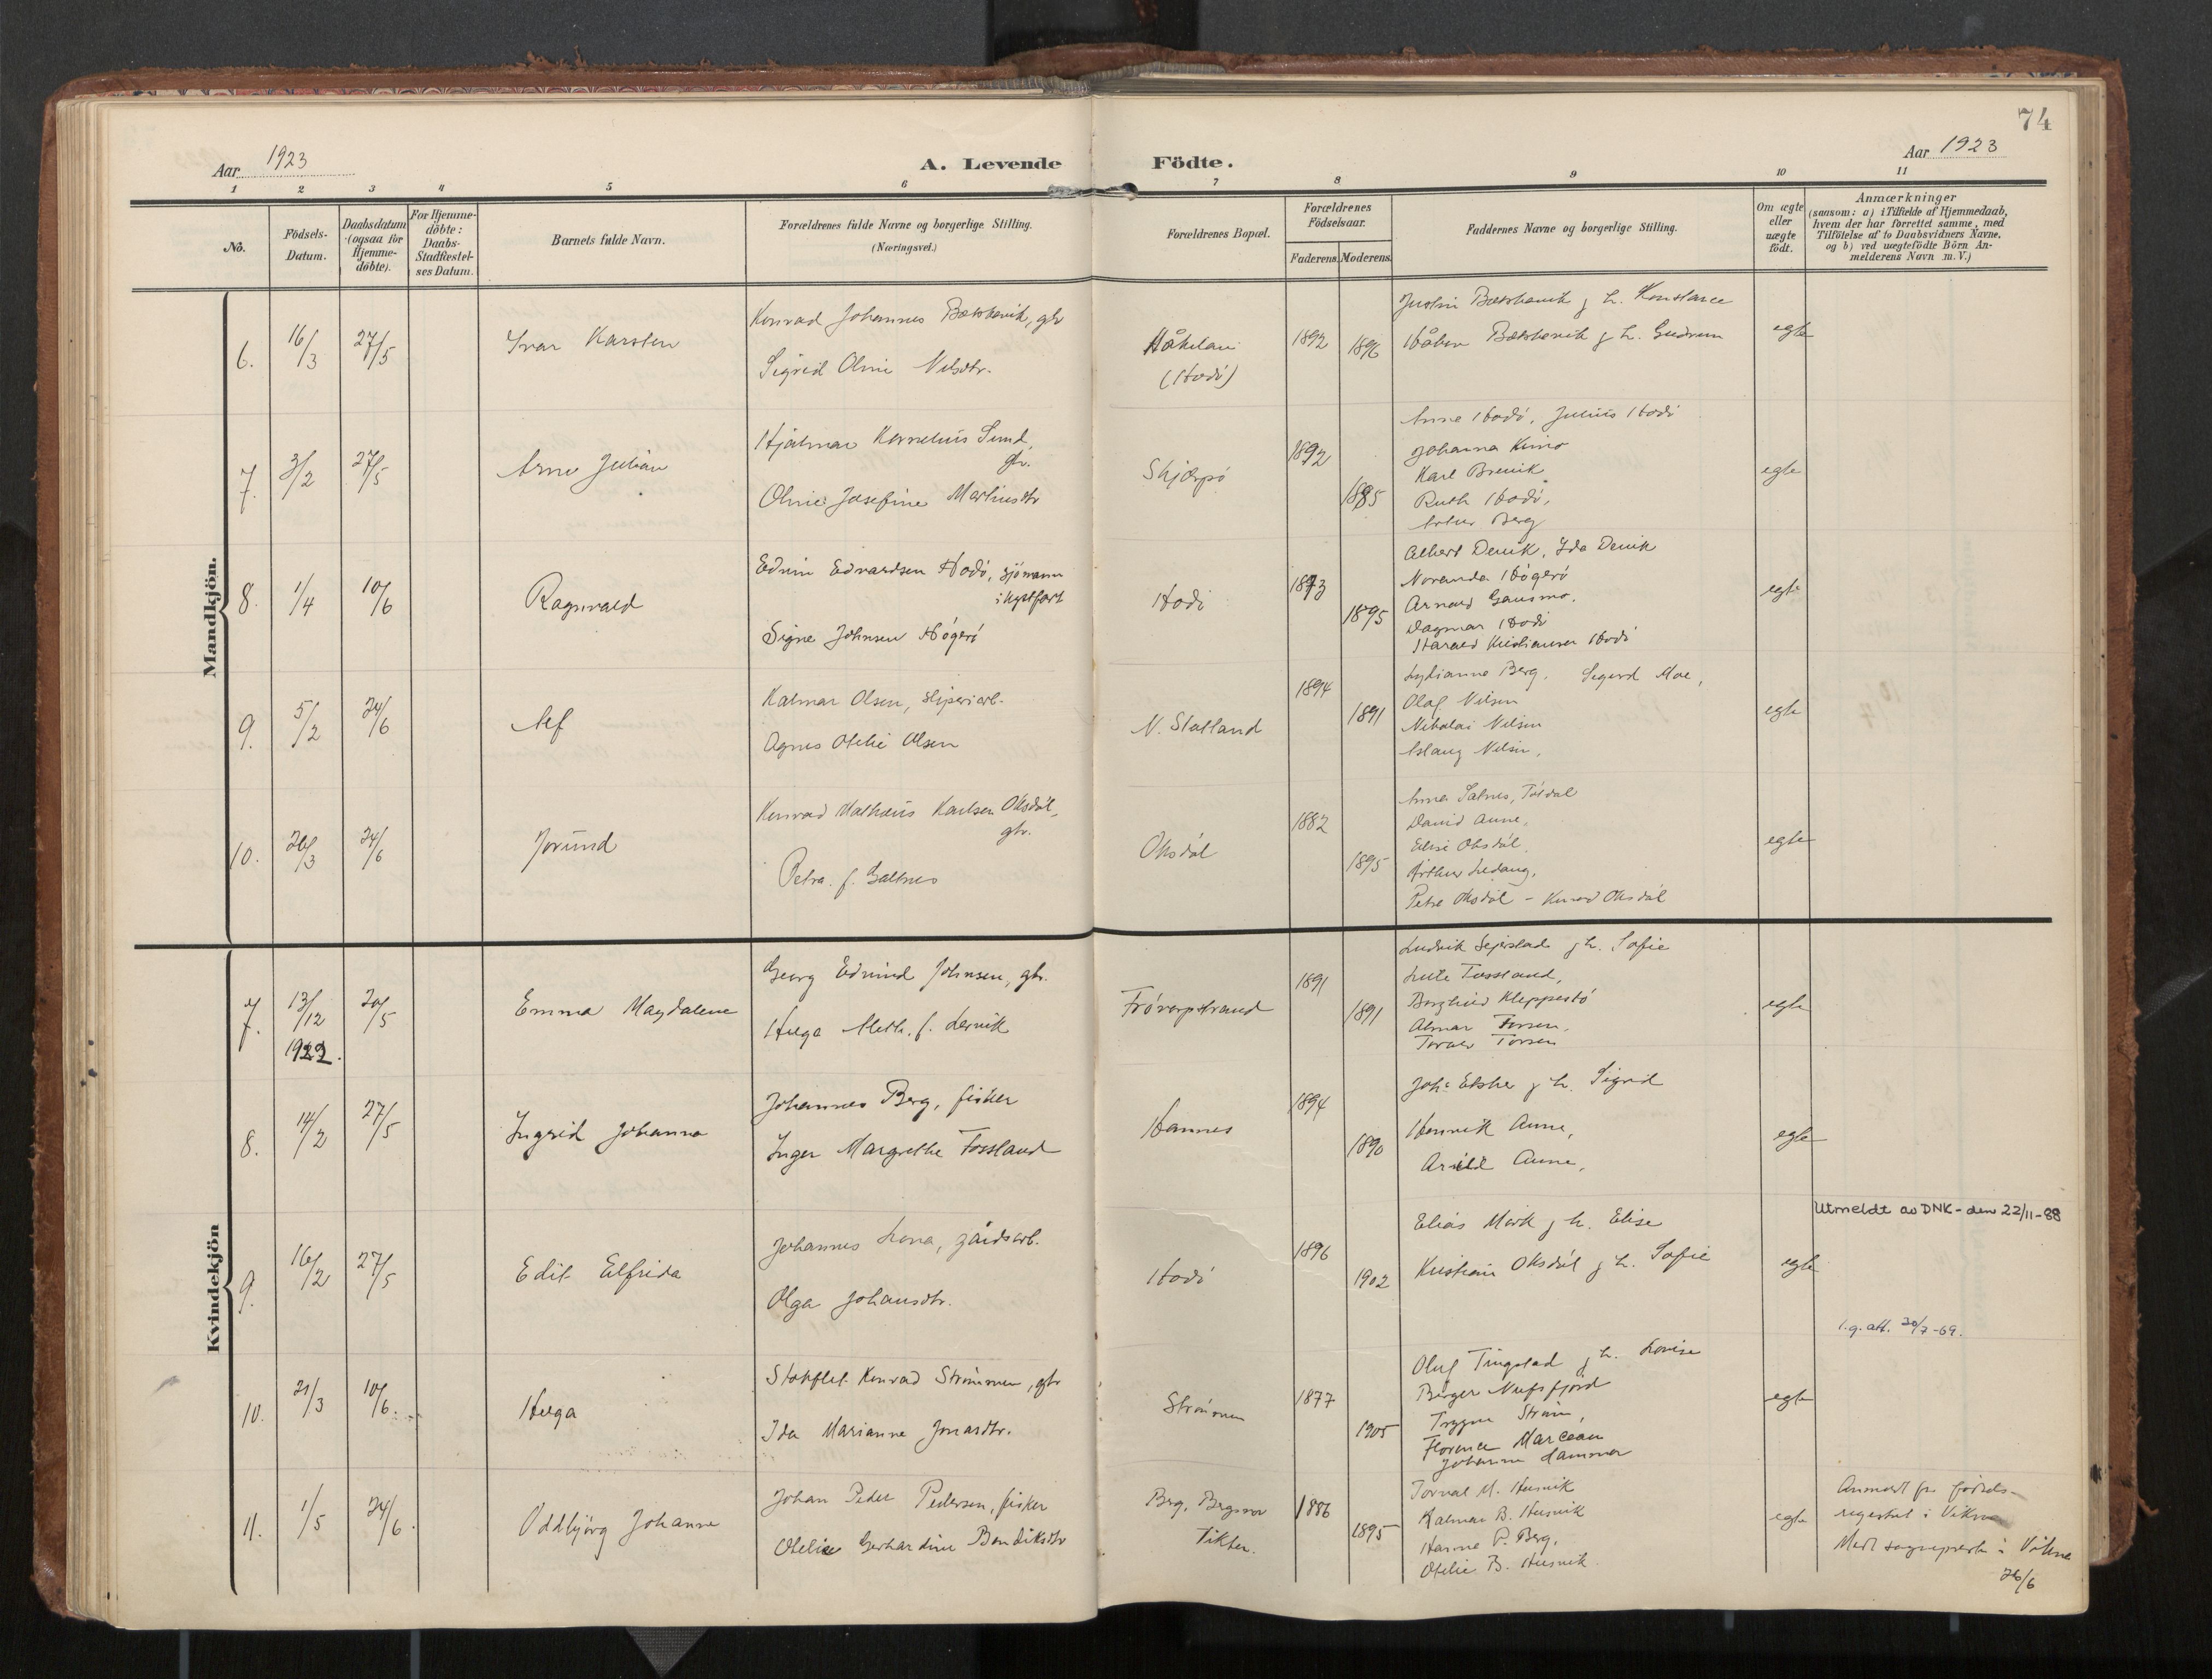 74
Aar 1923
A. Levende Födte.
Aar 1923
1 2 3 4 5 6 7 8 9 10 11
No.
Födsels-Datum.
Daabsdatum (ogsaa for Hjemme-döbte).
For Hjemme-döbte: Daabs-Stadfæstel-ses Datum.
Barnets fulde Navn.
Forældrenes fulde Navne og borgerlige Stilling.
(Næringsvei.)
Forældrenes Bopæl.
Forældrenes Födselsaar.
Faderens. Moderens.
Faddernes Navne og borgerlige Stilling.
Om ægte eller uægte födt.
Anmærkninger
(saasom: a) i Tilfælde af Hjemmedaab,
hvem der har forrettet samme, med
Tilföielse af to Daabsvidners Navne,
og b) ved uægtefödte Börn An-
melderens Navn m. V.)
Mandkjön.
6. 16/3 27/5 Ivar Karsten
Konrad Johannes Batsknevik, gbr
Sigrid Oline Nilsdtr.
(Hodö)
1892 1896
j h. Konstance
j h. Gudrun
egte
7. 3/2 27/5 Arne Julian
Hjalmar Kornelius Sund,
gbr.
Oline Josefine Martinsdtr
Skjærpö
1892
1885
Anne Hodö, Julius Hodö
Johanna
Karl Brevik
Ruth Hodö,
Artur Berg
egte
8. 1/4 10/6 Ragnvald
Edvin Edvardsen Hodö, sjömann
i kystfart
Signe Johnsen Högerö
Hodö
1873
1895
Albert Devik, Ida Devik
Noranda Högerö
Arnold Gansmo.
Dagmar Hodö
Harald Kristiansen Hodö
egte
9. 5/2 24/6 Alf
Kalmar Olsen, sliperiarb.
Agnes Otelie Olsen
N. Statland
1894
1891
Lydianna Berg, Sigurd Moe,
Olaf Nilsen
Nikolai Nilsen
Aslaug Nilsen,
egte
10. 26/3 24/6 Jorund
Konrad Mathæus Karlsen Oksdöl,
gbr.
Petra f. Galtnes
Oksdöl
1882
1895
Anna Satnes,
David Aune,
Elise Oksdöl,
Arthur Ledang,
Petra Oksdöl – Konrad Oksdöl
egte
Kvindekjön
7. 13/12 1922. 20/5 Emma Magdalene
Georg Edmund Johnsen, gbr.
Helga Meth. f. Lervik
Frövarpstrand
1891
1891
Ludvik Sejerstad j h. Sofie
Fossland,
Borghild Kleppestö
Almar Torsen,
Torsen
egte
8. 14/2 27/5 Ingrid Johanna
Johannes Berg, fisker
Inger Margrethe Fossland
Hannes
1894
1890
Johs j h. Sigrid
Henrik Aune,
Arild Aune,
egte
9. 16/2 27/5 Edit Elfrida
Johannes Lona, gårdsarb.
Olga Johansdtr.
Hodö
1896
1902
Elias Mörk j h. Elise
Kristian Oksdöl j h. Sofie
egte
Utmeldt av DNK – den 22/11-88
l.g. att. 30/7-69.
10. 21/3 10/6. Helga
Stokflet Konrad Strömmen, gbr
Ida Marianne Jonasdtr.
Strömmen
1877
1905
Oluf Tingstad j h. Lovise
Birger Nufsfjord
Trygve Ström,
Florence Marceau
Johanna Hammer
egte
11. 1/5 24/6. Oddbjörg Johanne
Johan Peder Pedersen, fisker
Otelie Gerhardine Bendiksdtr
Berg,
Vikten.
1886
1895
Torvald M. Husvik
Kalmar B. Husvik
Hanna P. Berg,
Otelie B. Husvik.
egte
Anmeldt fra födsels-
registret i Vikna
Medt sogneprest i Vikna
26/6